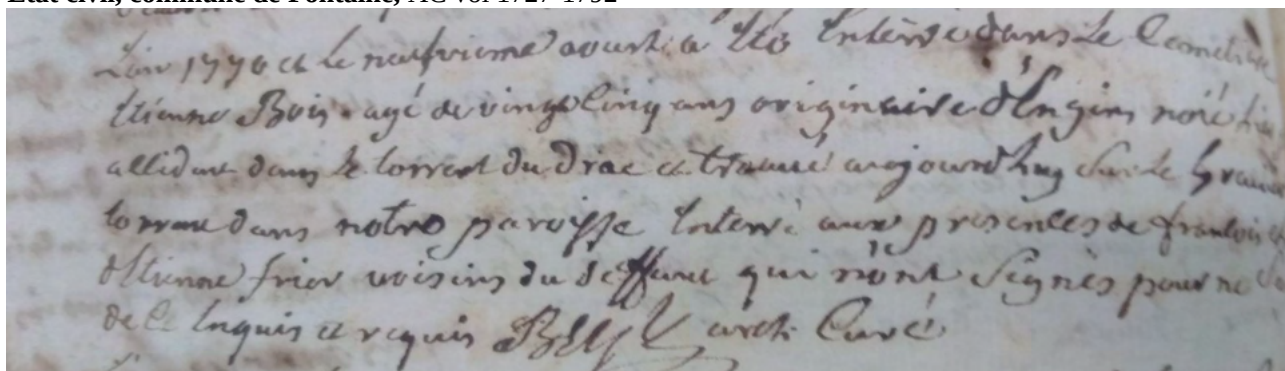 Etat civil, commune de Fontaine, AC vol 1727-1792
L'an 1770 et le neufvieme aoust a été Enterré dans le Cemetiere
Etienne Bois agé de vingt cinq ans originaire d'Engins noié hier
allidant dans le torrent du Drac et trouvé aujourdhuy sur le
torrent dans notre paroisse Enterré aux presences de francois et
d'Etienne frier voisins du deffunt qui n'ont signés pour ne
de ce Enquis et requis curé